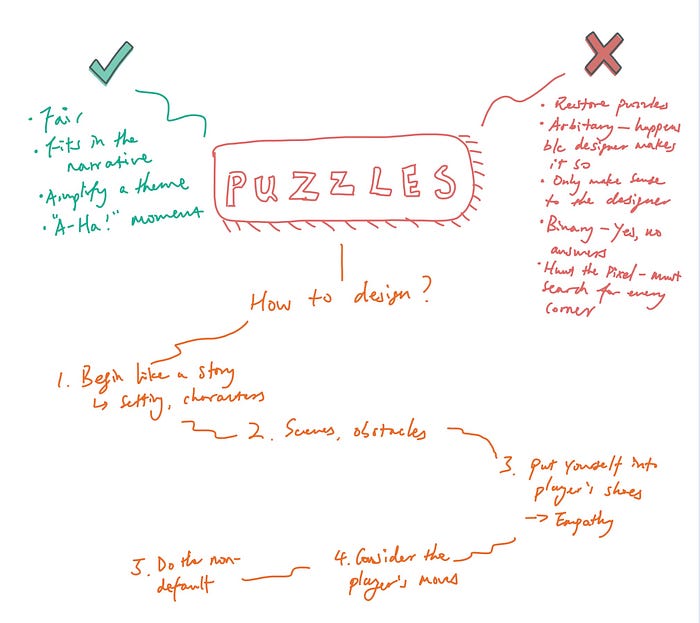 PUZZLES
• Fair
• Fits in the
narrative
• Amplify a theme
• "A-Ha!" moment
• Restore puzzles
• Arbitary — happens
b/c designer makes
it so
• Only make sense
to the designer
• Binary – Yes, no
answers
• Hunt the Pixel – must
search for every
corner
How to design?
1. Begin like a story
↳ setting, characters
2. Scenes, obstacles
3. Put yourself into
player's shoes
→ Empathy
4. Consider the
player's moves
5. Do the non-
default